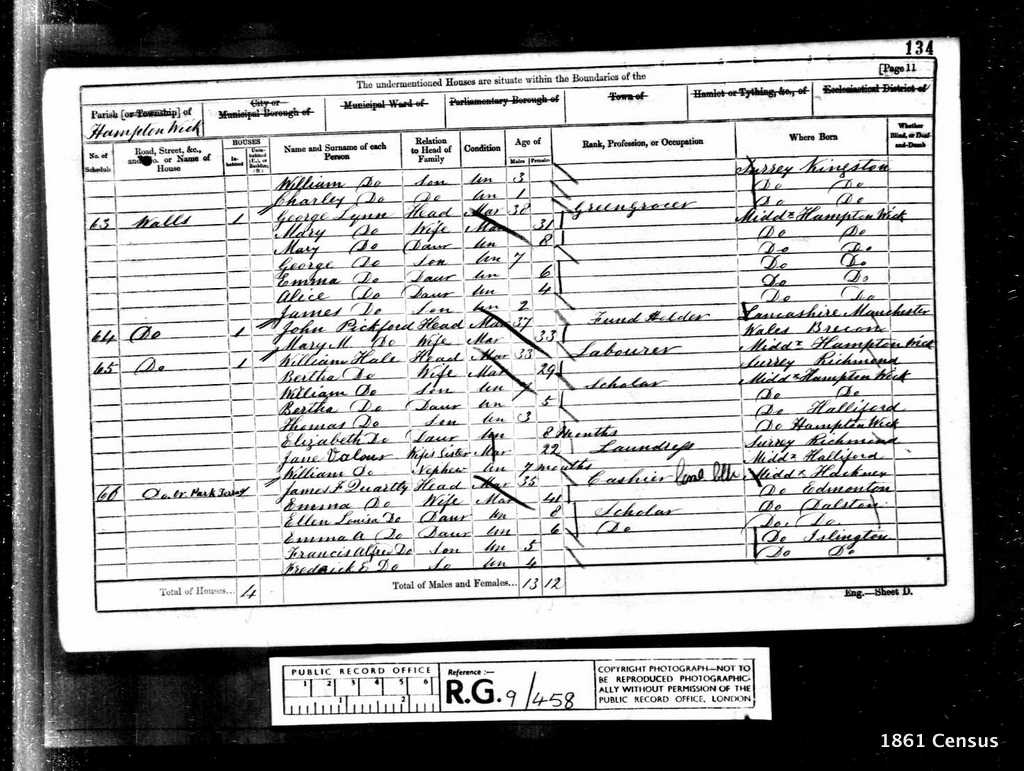 134
[Page 11
The undermentioned Houses are situate within the Boundaries of the
Parish [or Township] of City or Municipal Borough of Municipal Ward of Parliamentary Borough of Town of Hamlet or Tything, &c., of Ecclesiastical District of
Hampton Wick
No. of Schedule Road, Street, &c., and No. or Name of House HOUSES Inhabited Name and Surname of each Person Relation to Head of Family Condition Age of Males Females Rank, Profession, or Occupation Where Born Whether Blind, or Deaf-and-Dumb
William Do Son Un 3 Surrey Kingston
Charley Do Do Un 1 Do Do
63 Walls 1 George Lynn Head Mar 38 Greengrocer Do Do
Mary Do Wife Mar 31 Middx Hampton Wick
Mary Do Daur Un 8 Do Do
George Do Son Un 7 Do Do
Emma Do Daur Un 6 Do Do
Alice Do Daur Un 4 Do Do
James Do Son Un 2 Do Do
64 Do 1 John Pickford Head Mar 37 Fund Holder Lancashire Manchester
Mary M. Do Wife Mar 33 Wales Brecon
65 Do 1 William Hale Head Mar 33 Labourer Middx Hampton Wick
Bertha Do Wife Mar 29 Surrey Richmond
William Do Son Un 7 Scholar Middx Hampton Wick
Bertha Do Daur Un 5 Do Do
Thomas Do Son Un 3 Do Halliford
Elizabeth Do Daur Un 8 Months Do Hampton Wick
Jane Valour Wifes Sister Mar 22 Laundress Surrey Richmond
William Do Nephew Un 7 months Middx Halliford
66 James F Quartly Head Mar 35 Cashier Middx Hackney
Emma Do Wife Mar 41 Do Edmonton
Ellen Louisa Do Daur Un 8 Scholar Do Dalston
Emma A Do Daur Un 6 Do Do. Do.
Francis Alfred Do Son Un 5 Do Islington
Fredrick E Do So Un 4 Do Do
Total of Houses... 4 Total of Males and Females... 13 12
Eng.—Sheet D.
PUBLIC RECORD OFFICE
1 2 3 4 5 6
1 2
Reference :-
R.G. 9/458
COPYRIGHT PHOTOGRAPH—NOT TO
BE REPRODUCED PHOTOGRAPHIC-
ALLY WITHOUT PERMISSION OF THE
PUBLIC RECORD OFFICE, LONDON
1861 Census